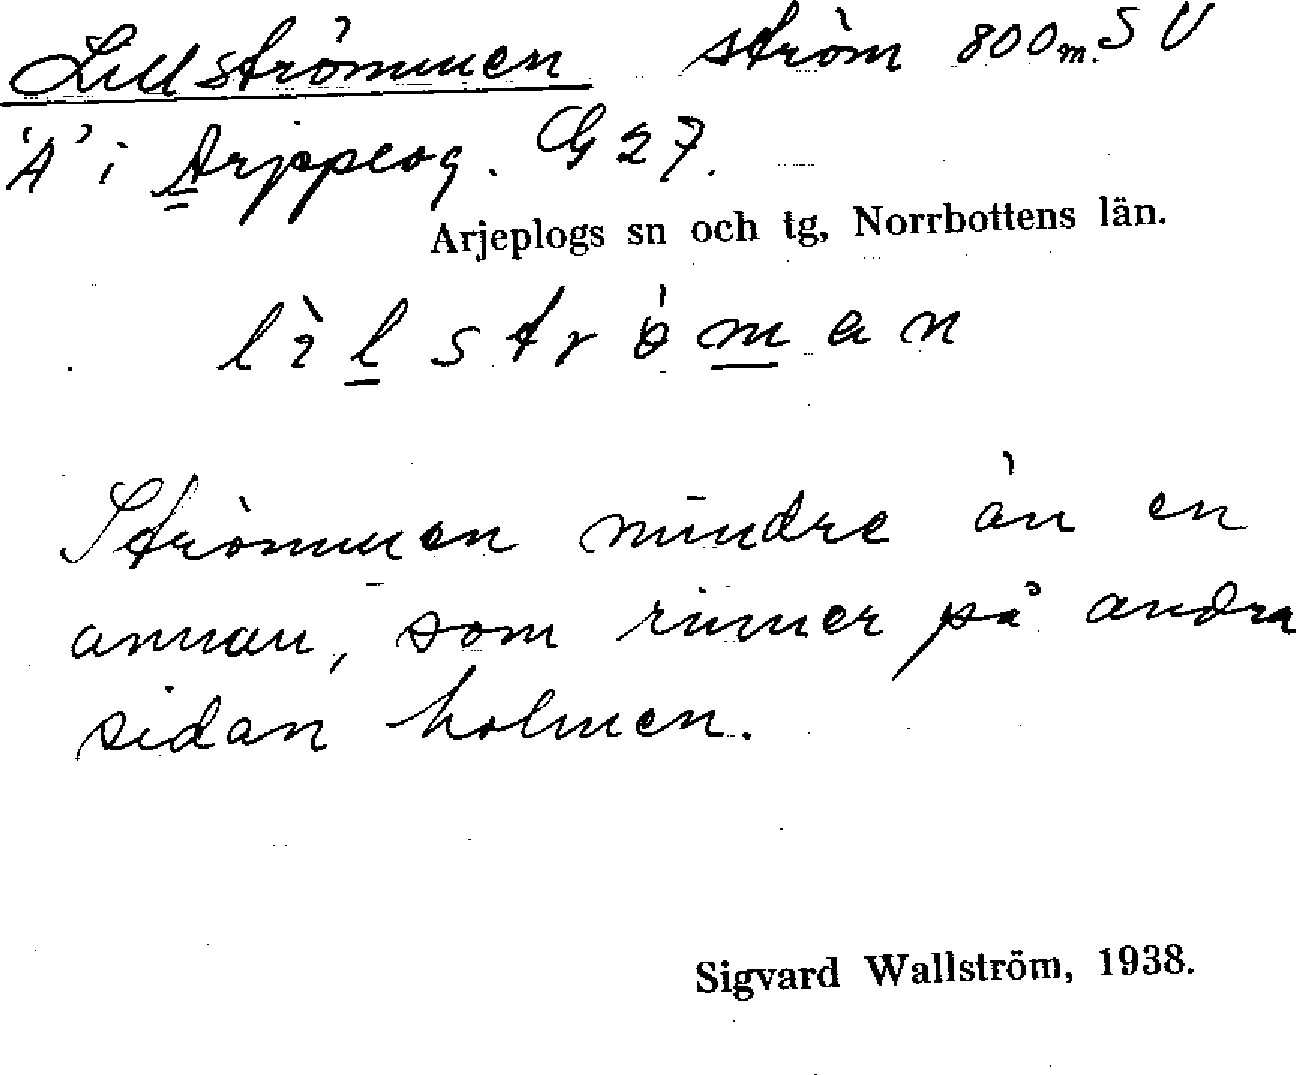 Lillströmmen ström 800 m. SV
'A' i Arjeplog. G 27.
Arjeplogs sn och tg, Norrbottens län.
lìlströ́man
Strömmen mindre än en
annan, som rinner på andra
sidan holmen.
Sigvard Wallström, 1938.